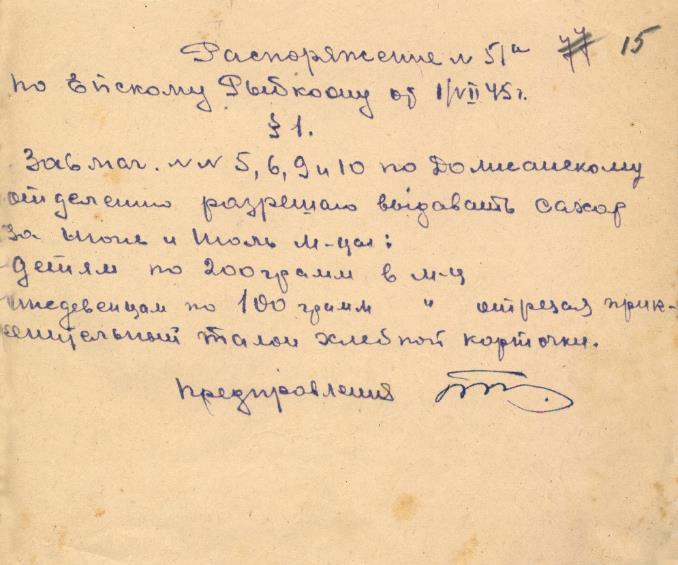 Распоряжение N 51а 77 15
по Ейскому Рыбкоопу от 1/VII 45 г.
§ 1.
Завмаг. NN 5, 6, 9 и 10 по Должанскому
отделению разрешаю выдавать сахар
за июнь и июль м-цы:
Детям по 200 грамм в м-ц
иждевенцам по 100 грамм " отрезая прик-
репительный талон хлебной карточки.
Предправления